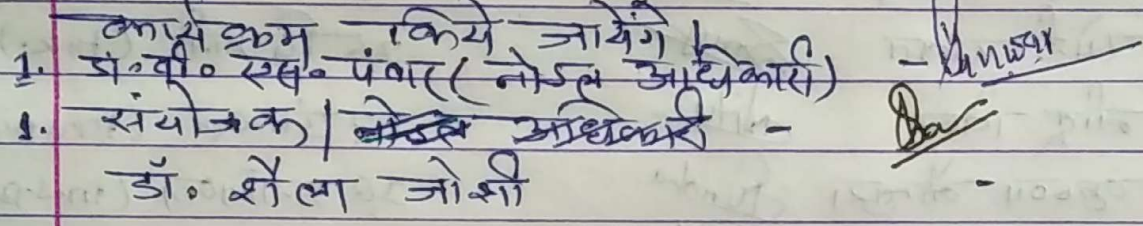 कार्यक्रम किये जायेंगे |
1. डॉ॰ वी॰ एस॰ पंवार ( नोडल अधिकारी) -
1. संयोजक | नोडल अधिकारी -
डॉ॰ शैला जोशी -